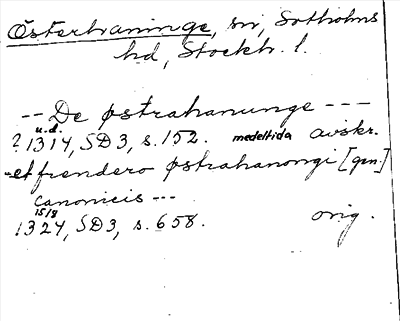 Österhaninge, sn, Sotholms
hd, Stockh. l.
-- De østrahanunge ---
u.d.
? 1314, SD 3, s. 152. medeltida avskr.
- et frendero østrahanongi [gm]
canonicis ---
15/8
1324, SD 3, s. 658. orig.